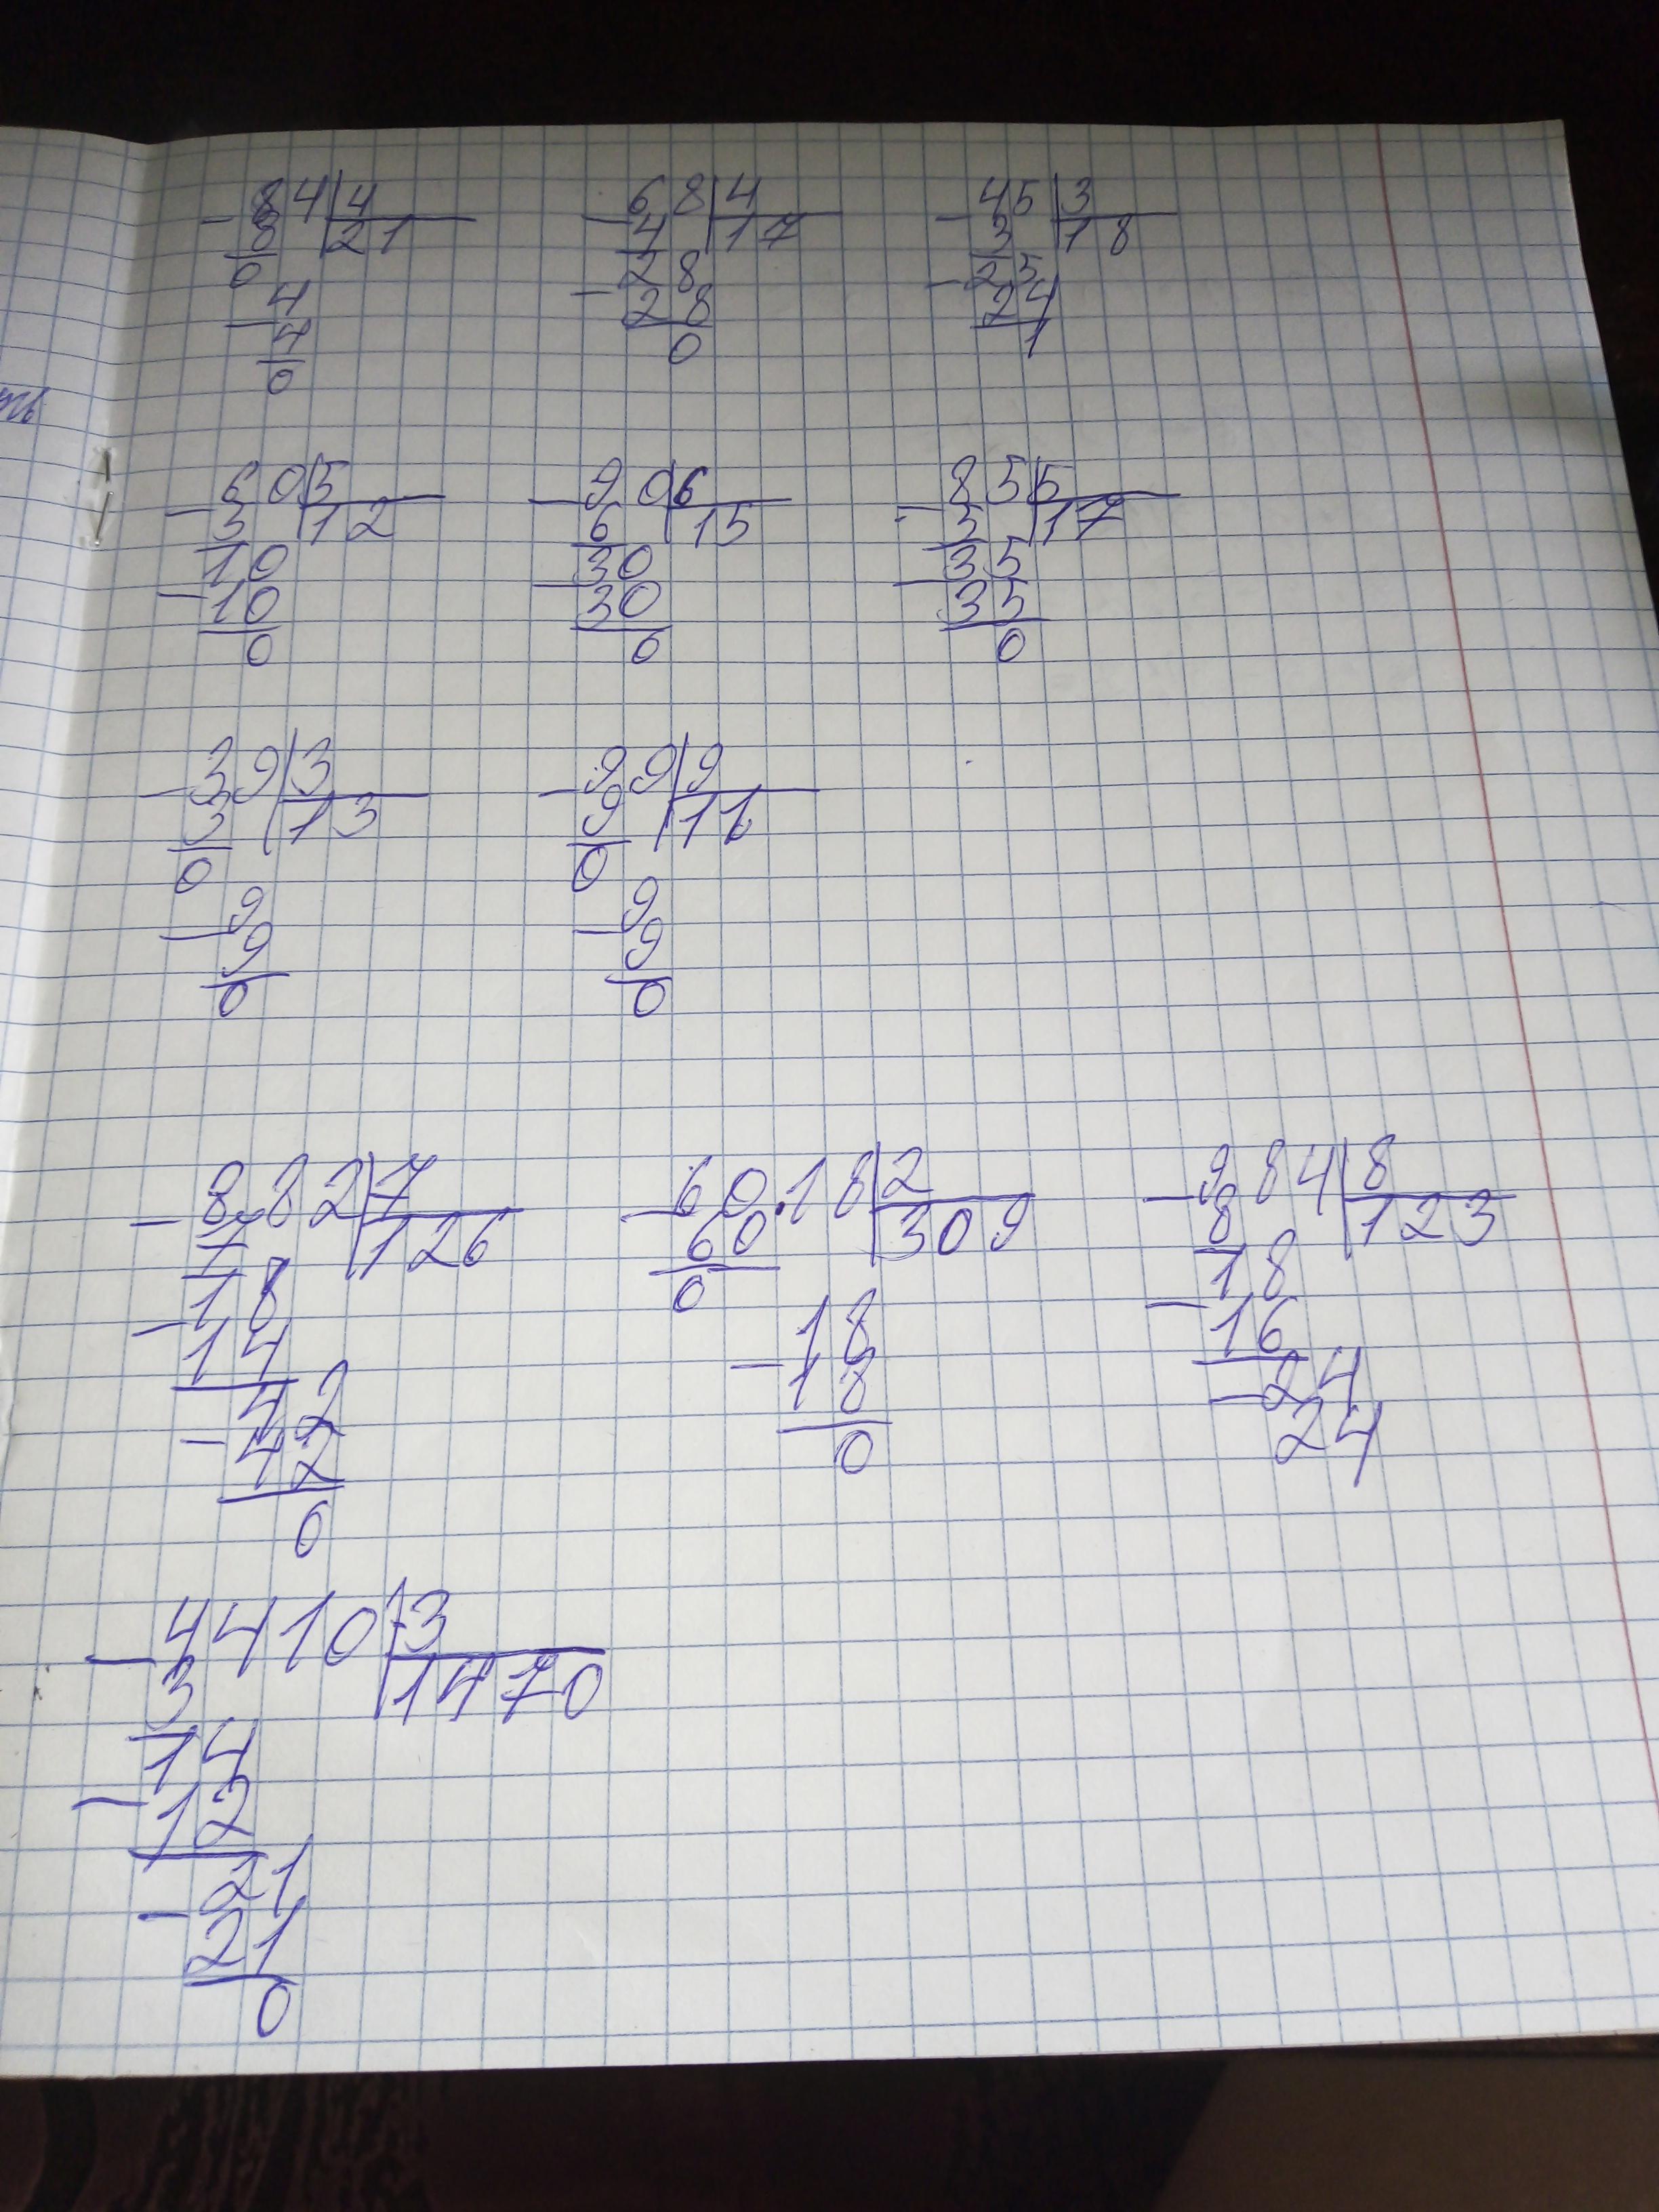 84|4 68|4 45|3
-8 21 -4 17 -3 18
0 28 -25
4 -28 24
-4 0 1
0
60|5 90|6 85|5
-5 12 -6 15 -5 17
10 30 35
-10 -30 -35
0 0 0
39|3 99|9
-3 13 -9 11
0 0
9 9
-9 -9
0 0
882|7 60.18|2 984|8
-7 126 -60 309 -8 123
18 0 18
-14 18 -16
42 -18 -24
-42 0 24
0
4410|3
-3 1470
14
-12
21
-21
0